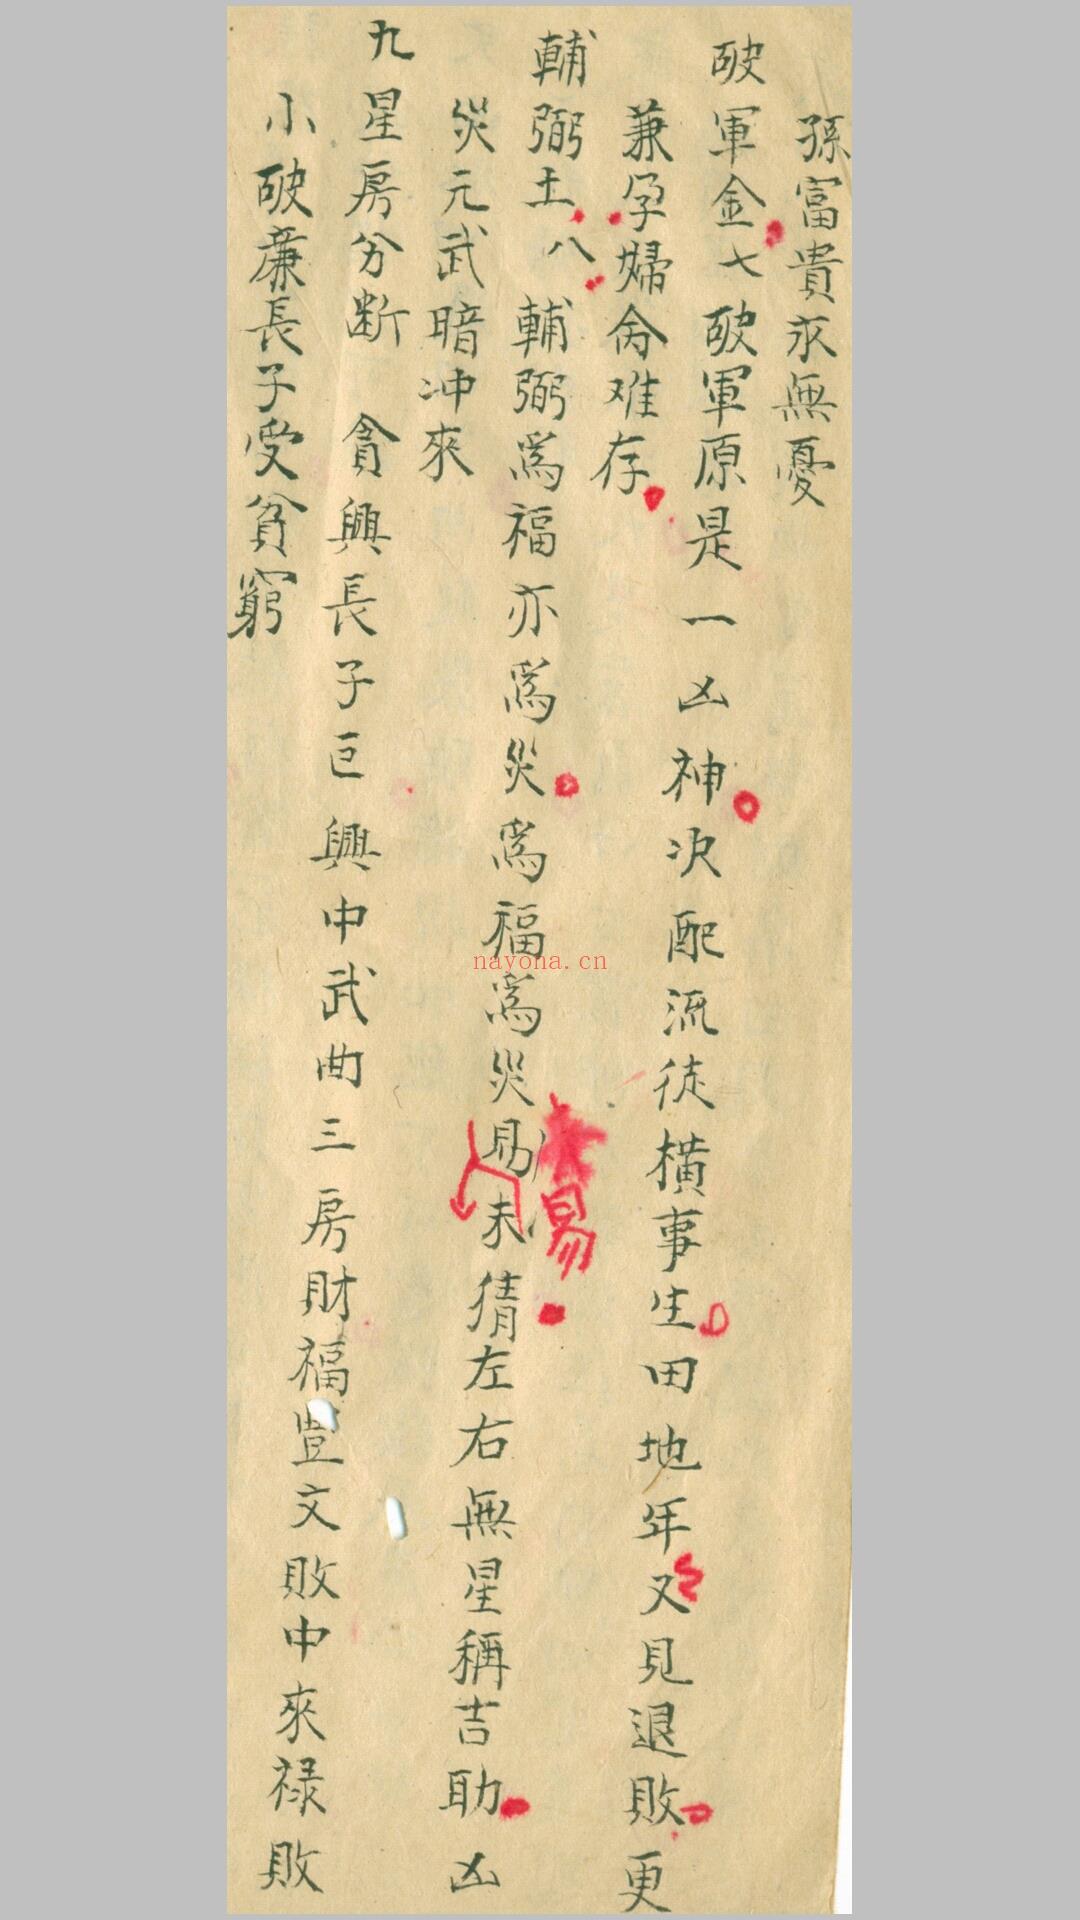 孫富貴永無憂
破軍金七 破軍原是一凶神次配流徒横事生田地年又見退敗更
兼孕婦命难存
輔弼土八 輔弼為福亦為災為福為災易未猜左右無星稱吉助凶
災元武暗冲來
九星房分断 貪興長子巨興中武曲三房財福豊文敗中來禄敗
小破廉長子受貧窮
易
nayona.cn